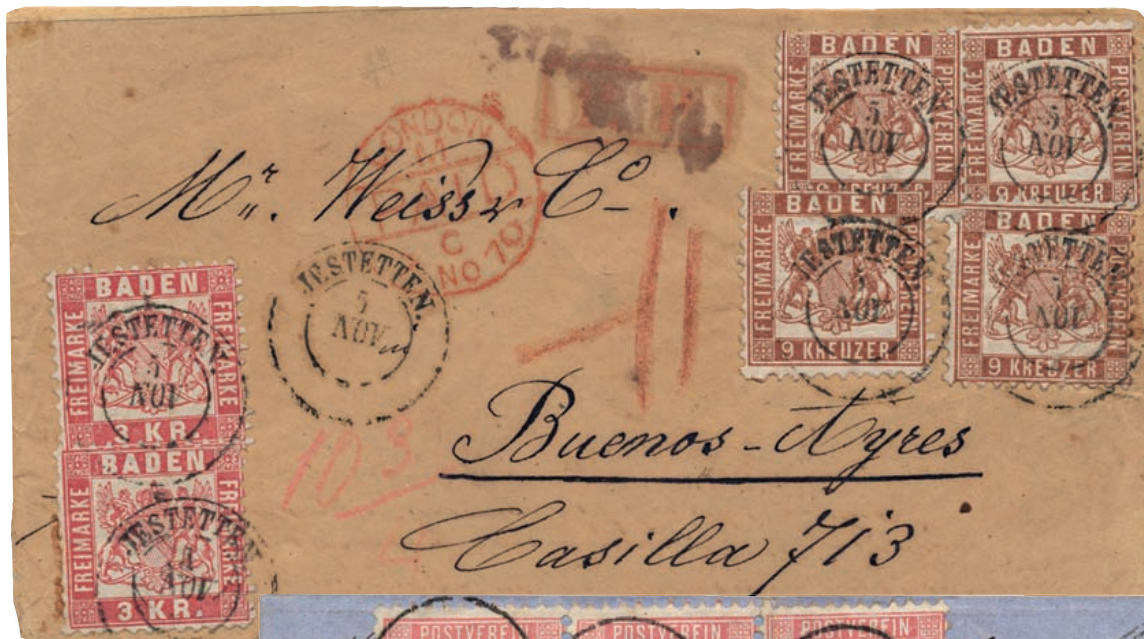 BADEN
FREIMARKE
POSTVEREIN
9 KREUZER
JESTETTEN.
5
NOV
BADEN
FREIMARKE
POSTVEREIN
9 KREUZER
JESTETTEN.
5
NOV
LONDON
PAID
C
NO 70
Mr. Weiss & Co.
BADEN
FREIMARKE
9 KREUZER
JESTETTEN.
NOV
BADEN
FREIMARKE
POSTVEREIN
9 KREUZER
JESTETTEN.
NOV
JESTETTEN.
5
NOV
BADEN
FREIMARKE
FREIMARKE
3 KR.
JESTETTEN.
NOV
BADEN
FREIMARKE
FREIMARKE
3 KR.
JESTETTEN.
NOV
103
Buenos-Ayres
Casilla 713
POSTVEREIN
POSTVEREIN
POSTVEREIN